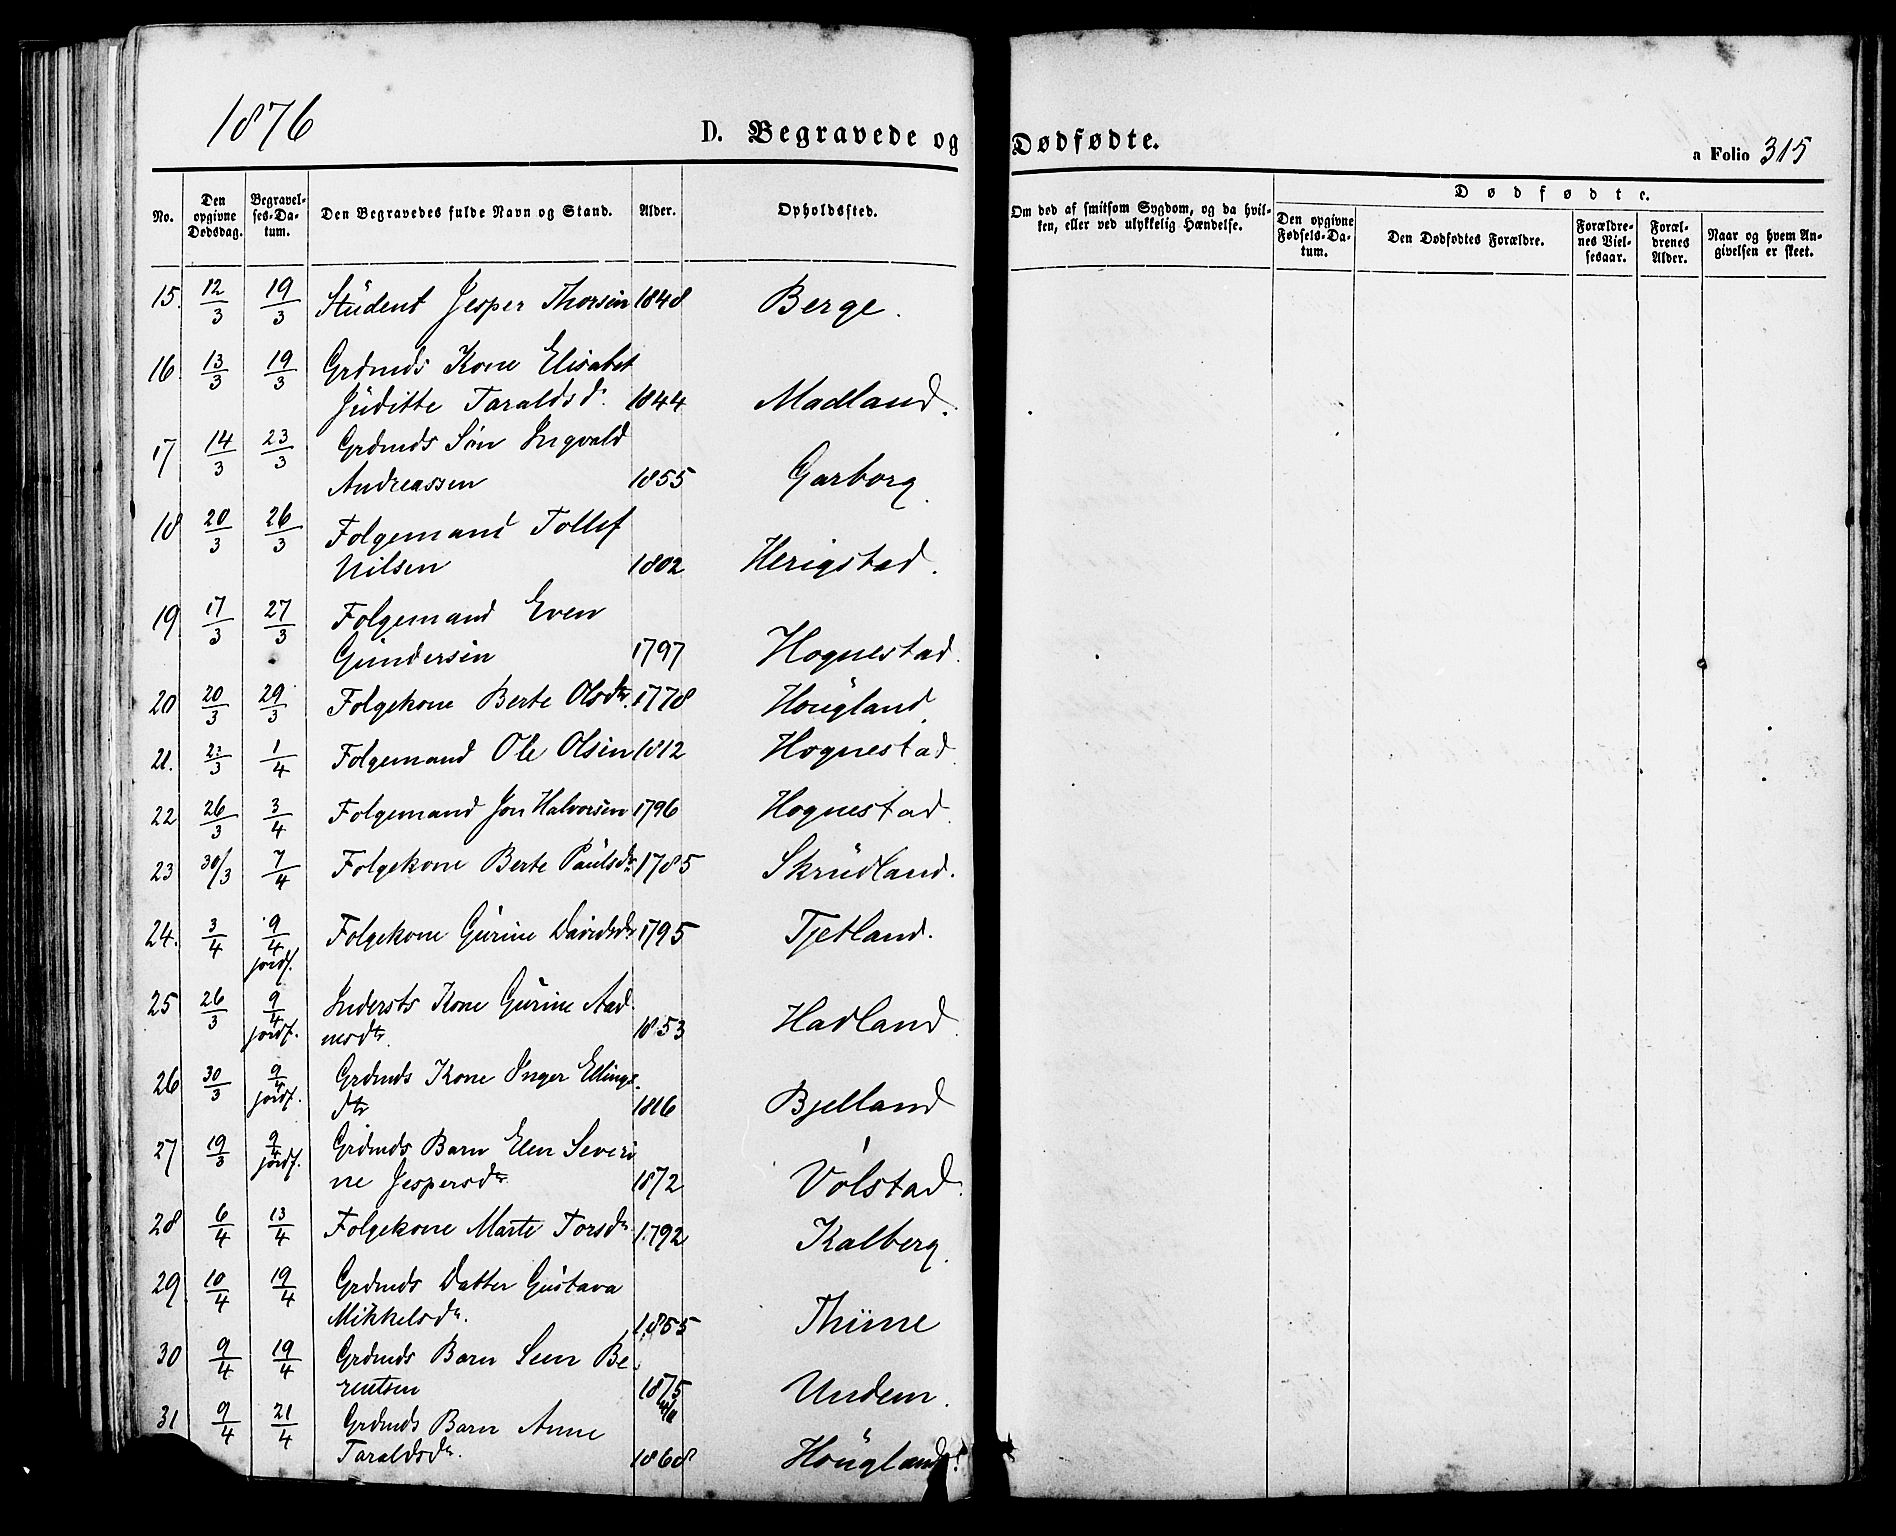 1876
D. Begravede og Dødfødte.
a Folio 315
No. | Den opgivne Dødsdag. | Begravelses-Datum. | Den Begravedes fulde Navn og Stand. | Alder. | Opholdssted. | Om død af smitsom Sygdom, og da hvilken, eller ved ulykkelig Hændelse. | Dødfødte. | Den opgivne Fødsels-Datum. | Den Dødfødtes Forældre. | Forældrenes Vielsesaar. | Forældrenes Alder. | Naar og hvem Angivelsen er skeet.
15. 12/3 19/3 Student Jesper Thorsen 1848 Berge.
16. 13/3 19/3 Grdmds Kone Elisabet
Juditte Taraldsd. 1844 Madland.
17 14/3 23/3 Grdmds Søn Ingvald
Andreassen 1855 Garborg.
18 20/3 26/3 Folgemand Tollef
Nilsen 1802 Herigstad.
19 17/3 27/3 Folgemand Even
Gundersen 1797 Hognestad.
20 20/3 29/3 Folgekone Berte Olsdtr. 1778 Hougland
21. /3 1/4 Folgemand Ole Olsen 1812 Hognestad.
22 26/3 3/4 Folgemand Jon Halvorsen 1796 Hognestad.
23 30/3 7/4 Folgekone Berte Paulsdr. 1785 Skrudland.
24. 3/4 9/4 jordf. Folgekone Gurine Davidsdr 1795 Tjetland.
25 26/3 9/4 jordf. Indersts Kone Gurine Aad
nesdtr. 1853 Hadland.
26 30/3 9/4 jordf. Grdmds Kone Inger Ellings
dtr 1816 Bjelland
27 19/3 9/4 jordf. Grdmds Barn Elen Severi
ne Jespersdtr 1872 Volstad.
28 6/4 13/4 Folgekone Marte Torsdr 1792 Kalberg.
29 10/4 19/4 Grdmds Datter Gustava
Mikkelsdr. 1855 Thime
30 9/4 19/4 Grdmds Barn Sven Be
rentsen 1875 Undem.
31 9/4 21/4 Grdmds Barn Anne
Taraldsdr. 1868 Hougland.